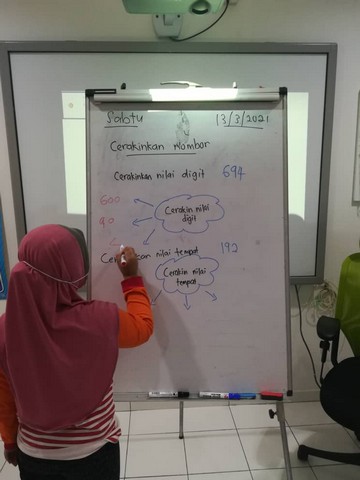 Sabtu 13/3/2021
Cerakinkan Nombor
Cerakinkan nilai digit 694
600
90
Cerakin nilai
digit
nilai tempat 192
Cerakin nilai
tempat